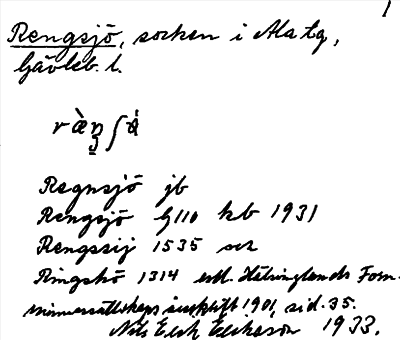 1
Rengsjö, socken i Ala tg,
Gävleb. l.
Regnsjö jb
Rengsjö G110 kb 1931
Rengssij 1535
Ringshö 1314 enl. Hälsinglands Forn-
minnessällskaps årsskrift 1901, sid. 35.
Nils Erik Eriksson 1933.